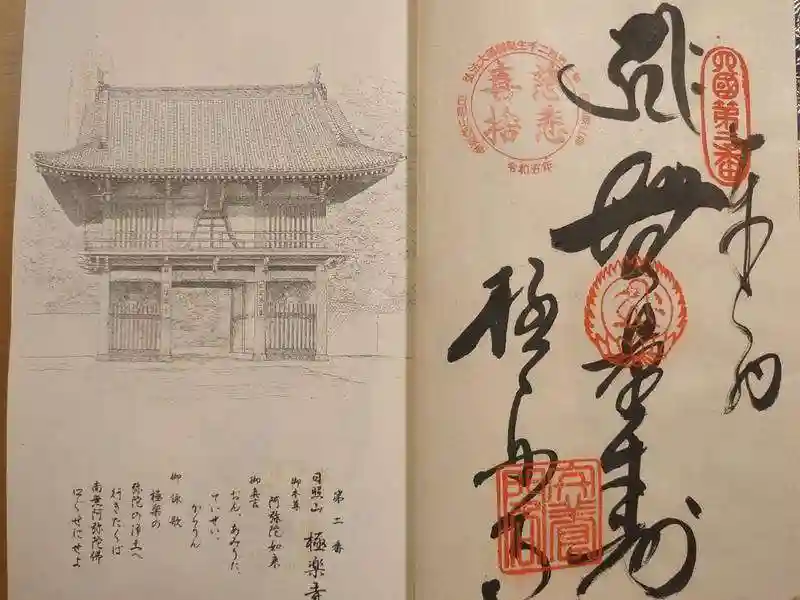 四國第二番
奉納
無量寿
極楽寺
慈悲
喜捨
令和五年
第二番
日照山 極楽寺
御本尊
阿弥陀如来
御真言
おん、あみりた、
ていせい、
からうん
御詠歌
極楽の
弥陀の浄土へ
行きたくば
南無阿弥陀佛
口ぐせにせよ